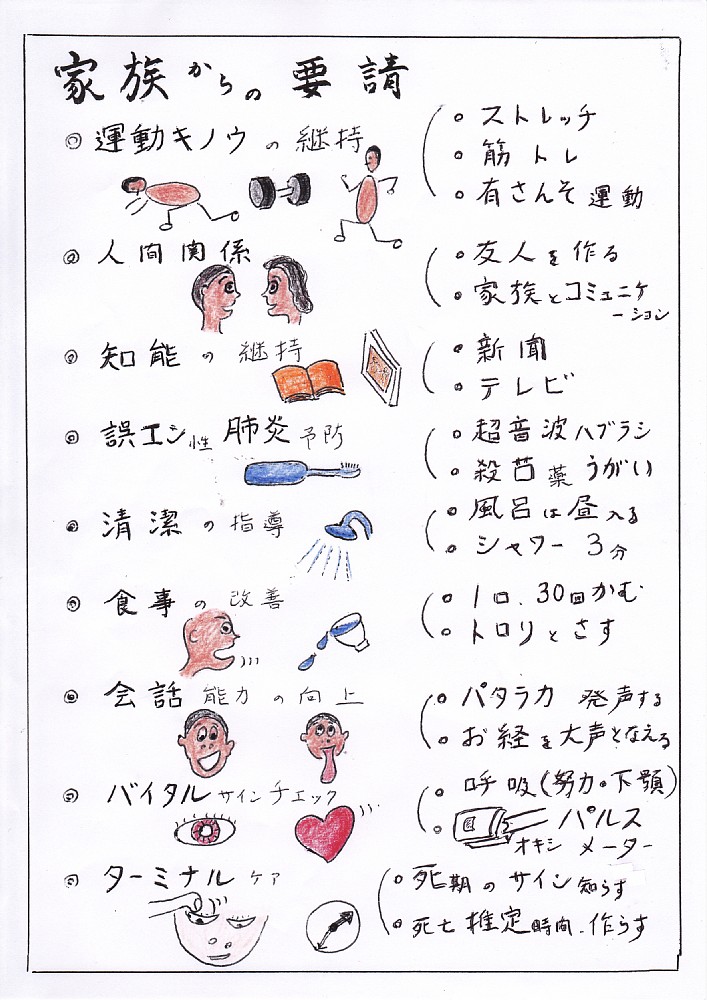 家族からの要請
◎ 運動キノウの継持
○ ストレッチ
○ 筋トレ
○ 有さんそ運動
◎ 人間関係
○ 友人を作る
○ 家族とコミュニケーション
◎ 知能の継持
○ 新聞
○ テレビ
◎ 誤エン性肺炎予防
○ 超音波ハブラシ
○ 殺菌薬うがい
◎ 清潔の指導
○ 風呂は昼入る
○ シャワー3分
◎ 食事の改善
○ 1口、30回かむ
○ トロリとさす
◎ 会話能力の向上
○ パタラカ 発声する
○ お経を大声となえる
◎ バイタルサインチェック
○ 呼吸(努力・下顎)
○ パルス
オキシメーター
◎ ターミナルケア
○ 死期のサイン知らす
○ 死亡推定時間、作らす